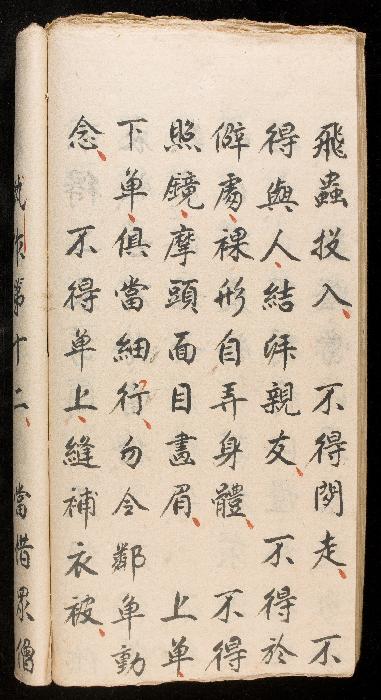 飛蟲投入、不得閒走、不
得與人、結拜親友、不得於
僻處、裸形自弄身體、不得
照鏡、摩頭面目畫眉、上单
下单、俱當細行、勿令鄰单動
念、不得单上、縫補衣被、
第十二、當惜眾僧